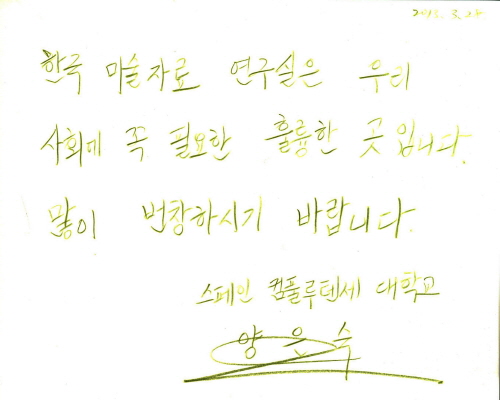 한국 미술자료 연구실은 우리
사회에 꼭 필요한 훌륭한 곳입니다.
많이 번창하시기 바랍니다.
스페인 컴플루텐세 대학교
양은숙